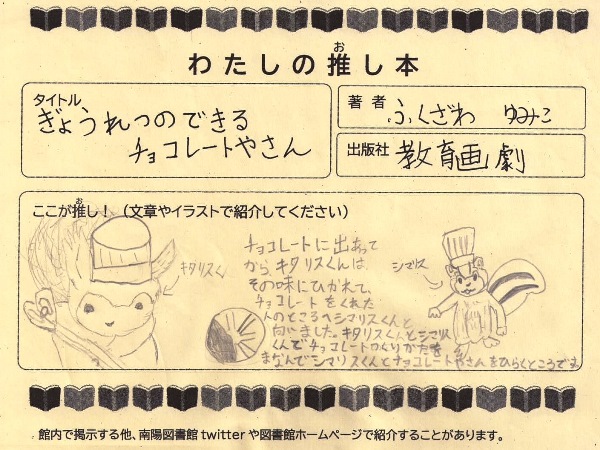 わたしの推し本
お
タイトル
ぎょうれつのできる
チョコレートやさん
著者 ふくざわ ゆみこ
出版社 教育画劇
ここが推し！（文章やイラストで紹介してください）
お
キタリスくん
シマリス
チョコレートに出あって
からキタリスくんは、
その味にひかれて、
チョコレートをくれた
人のところへシマリスくんと
向いました。キタリスくんとシマリス
くんでチョコレートのつくりかたを
まなんでシマリスくんとチョコレートやさんをひらくところです。
館内で掲示する他、南陽図書館twitterや図書館ホームページで紹介することがあります。